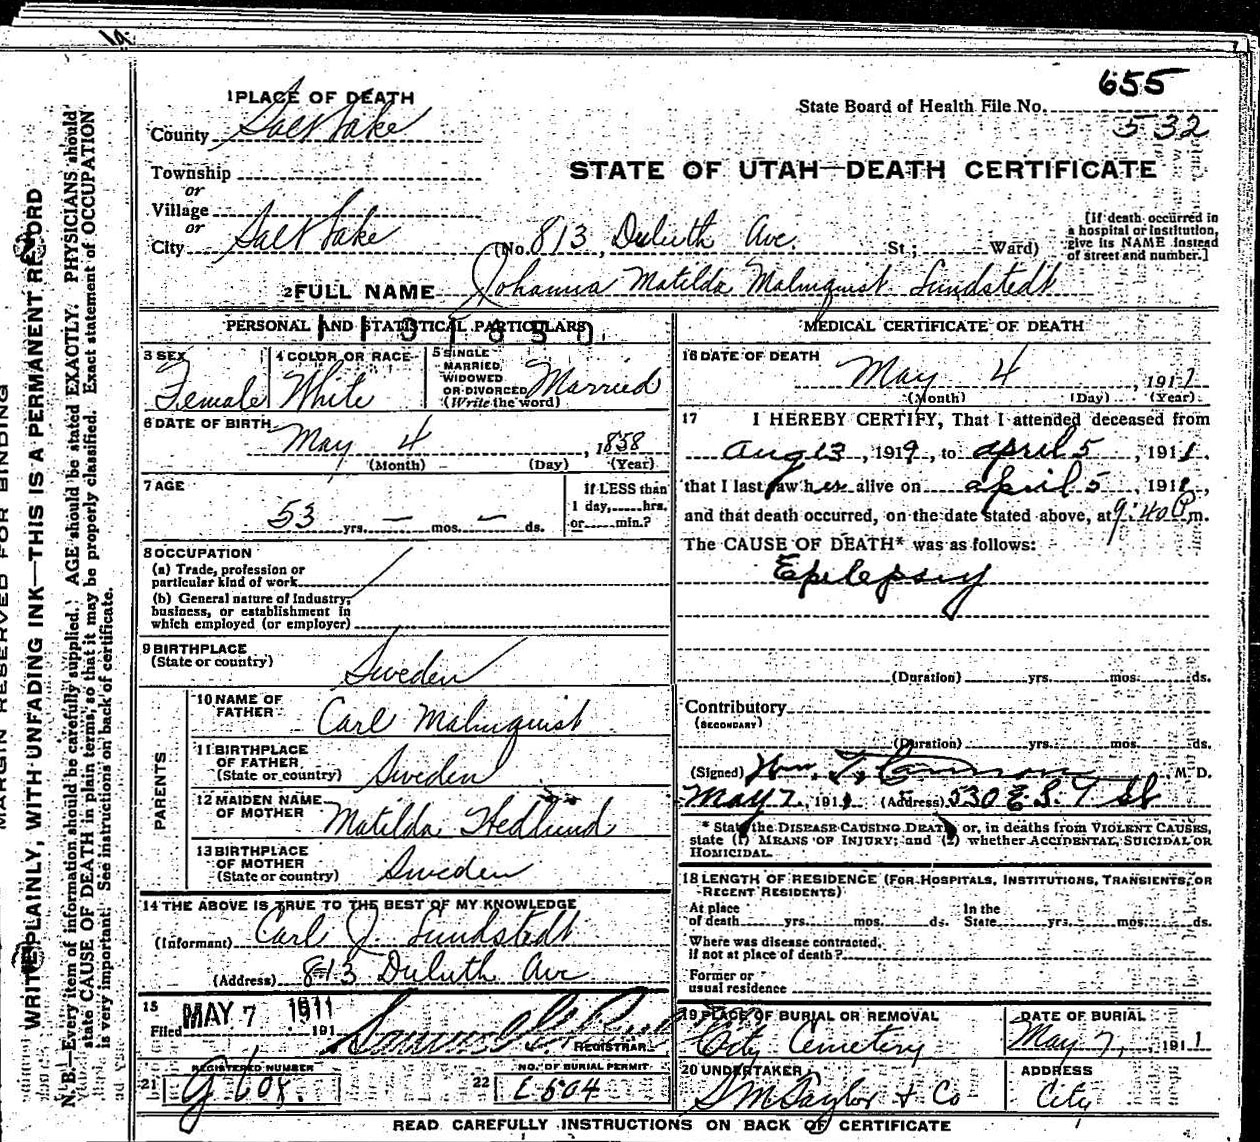 655
State Board of Health File No.
532
1 PLACE OF DEATH
County Salt Lake
STATE OF UTAH—DEATH CERTIFICATE
Township
or
Village
or
City Salt Lake (No. 813, Duluth Ave. St; Ward)
[If death occurred in
a hospital or institution,
give its NAME instead
of street and number.]
2 FULL NAME Johanna Matilda Malmquist Sundstedt
PERSONAL AND STATISTICAL PARTICULARS
3 SEX
Female
4 COLOR OR RACE
White
5 SINGLE
MARRIED,
WIDOWED
OR DIVORCED
(Write the word)
Married
6 DATE OF BIRTH
May 4, 1858
(Month) (Day) (Year)
7 AGE
53 yrs. — mos. — ds.
If LESS than
1 day, hrs.
or min.?
8 OCCUPATION
(a) Trade, profession or
particular kind of work
(b) General nature of Industry,
business, or establishment in
which employed (or employer)
9 BIRTHPLACE
(State or country) Sweden
PARENTS
10 NAME OF
FATHER Carl Malmquist
11 BIRTHPLACE
OF FATHER
(State or country) Sweden
12 MAIDEN NAME
OF MOTHER Matilda Hedlund
13 BIRTHPLACE
OF MOTHER
(State or country) Sweden
14 THE ABOVE IS TRUE TO THE BEST OF MY KNOWLEDGE
(Informant) Carl J. Sundstedt
(Address) 813 Duluth Ave
15
Filed MAY 7 1911 191
REGISTRAR
REGISTERED NUMBER
21
NO. OF BURIAL PERMIT
22 E 604
MEDICAL CERTIFICATE OF DEATH
16 DATE OF DEATH
May 4, 1911
(Month) (Day) (Year)
17 I HEREBY CERTIFY, That I attended deceased from
Aug 13, 1919, to april 5, 1911.
that I last saw her alive on april 5, 1911,
and that death occurred, on the date stated above, at 9:40 P m.
The CAUSE OF DEATH* was as follows:
Epilepsy
(Duration) yrs. mos. ds.
Contributory
(SECONDARY)
(Duration) yrs. mos. ds.
(Signed) Wm. T. Cannon M. D.
May 7, 1911 (Address) 530 E. S. T St
* State the DISEASE CAUSING DEATH or, in deaths from VIOLENT CAUSES,
state (1) MEANS OF INJURY; and (2) whether ACCIDENTAL, SUICIDAL OR
HOMICIDAL.
18 LENGTH OF RESIDENCE (FOR HOSPITALS, INSTITUTIONS, TRANSIENTS, OR
RECENT RESIDENTS)
At place
of death yrs. mos. ds.
In the
State yrs. mos. ds.
Where was disease contracted,
if not at place of death?
Former or
usual residence
19 PLACE OF BURIAL OR REMOVAL
City Cemetery
DATE OF BURIAL
May 7, 1911
20 UNDERTAKER
S M Taylor & Co
ADDRESS
City
READ CAREFULLY INSTRUCTIONS ON BACK OF CERTIFICATE
MARGIN RESERVED FOR BINDING
WRITE PLAINLY, WITH UNFADING INK—THIS IS A PERMANENT RECORD
N. B.—Every item of information should be carefully supplied. AGE should be stated EXACTLY. PHYSICIANS should
state CAUSE OF DEATH in plain terms, so that it may be properly classified. Exact statement of OCCUPATION
is very important. See instructions on back of certificate.